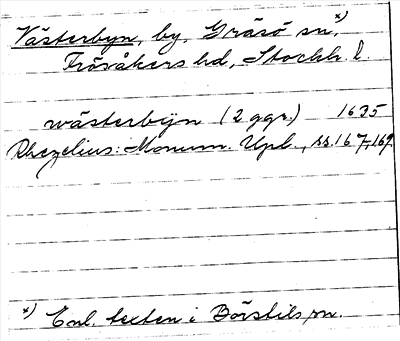 Västerbyn, by, Gräsö sn, x)
Frösåkers hd, Stockh. l.
wästerbÿn (2 ggr.) 1635
Rhezelius: Monum. Upl., ss. 167, 169.
x) Enl. texten i Börstils sn.